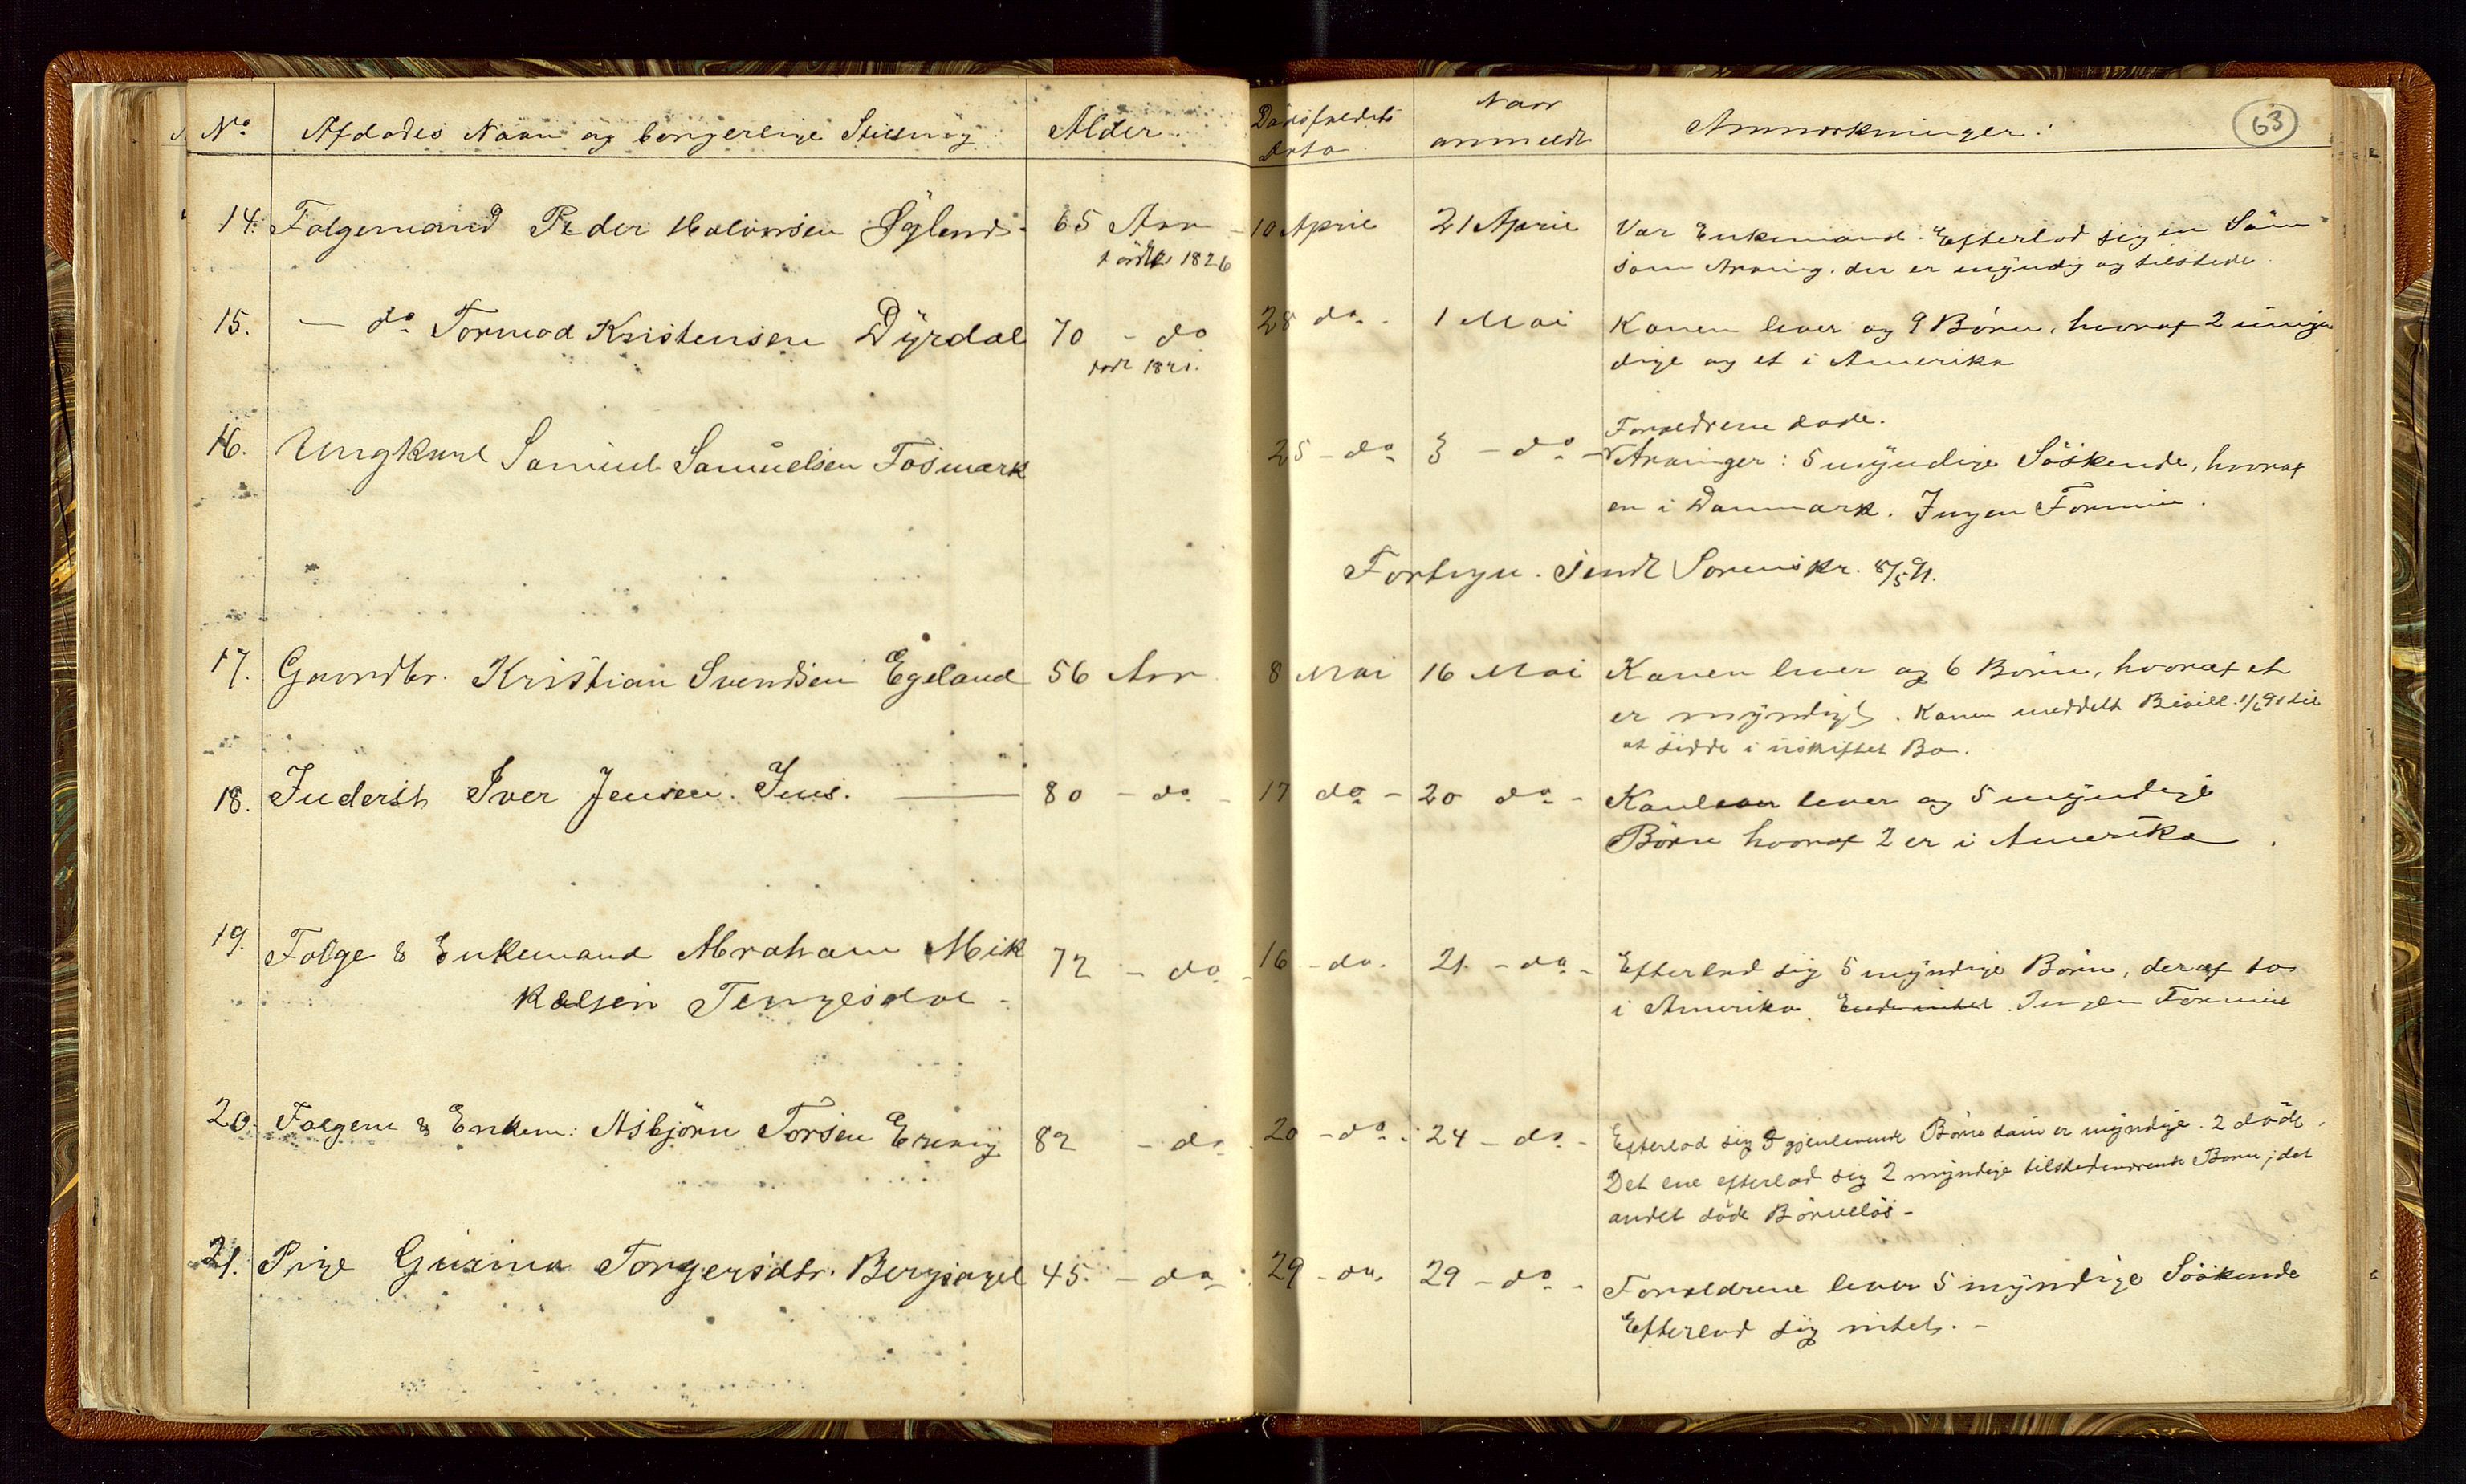 No Afdødes Navn og borgerlige Stilling Alder Dødsfaldets Dato Naar anmeldt Anmærkninger. 63
14. Folgemand Peder Halvorsen Øglend 65 Aar 10 April 21 April Var Enkemand. Efterlod sig en Søn
født 1826 som Arving, der er myndig og tilstede
15. – do Tormod Kristensen Dyrdal 70 – do 28 do. 1 Mai Konen lever og 9 Børn, hvoraf 2 umyn
født 1821. dige og et i Amerika
Forældrene døde.
16. Ungkarl Samuel Samuelsen Fosmark 25 – do 3 – do – Arvinger: 5 myndige Söskende, hvoraf
en i Danmark. Ingen Formue.
Fortegn. sendt Sorenskr. 8/5 91.
17. Gaardbr. Kristian Svendsen Egeland 56 Aar 8 Mai 16 Mai Konen lever og 6 Børn, hvoraf et
er myndigt. Konen meddelt Bevill. 1/6 91 til
at sidde i uskiftet Bo.
18. Inderst Iver Jensen Ims. 80 – do – 17 do – 20 do – lever og 5 myndige
Børn hvoraf 2 er i Amerika.
19. Folge & Enkemand Abraham Mik 72 – do – 16 – do. 21 – do – Efterlod sig 5 myndige Børn, deraf to
kelsen Tengesdal – i Amerika. Ingen Formue
20. Folgem & Enkem: Asbjørn Torsen 82 – do. 20 – do. 24 – do – Efterlod sig 5 gjenlevende Børn som er myndige. 2 døde.
Det ene efterlod sig 2 myndige tilstedeværende Børn; det
andet døde Børnelös –
21. Pige Gurina Torgersdtr. Bergsagel 45. – do 29 – do. 29 – do – Forældrene lever 5 myndige Söskende
Efterlod sig intet. –